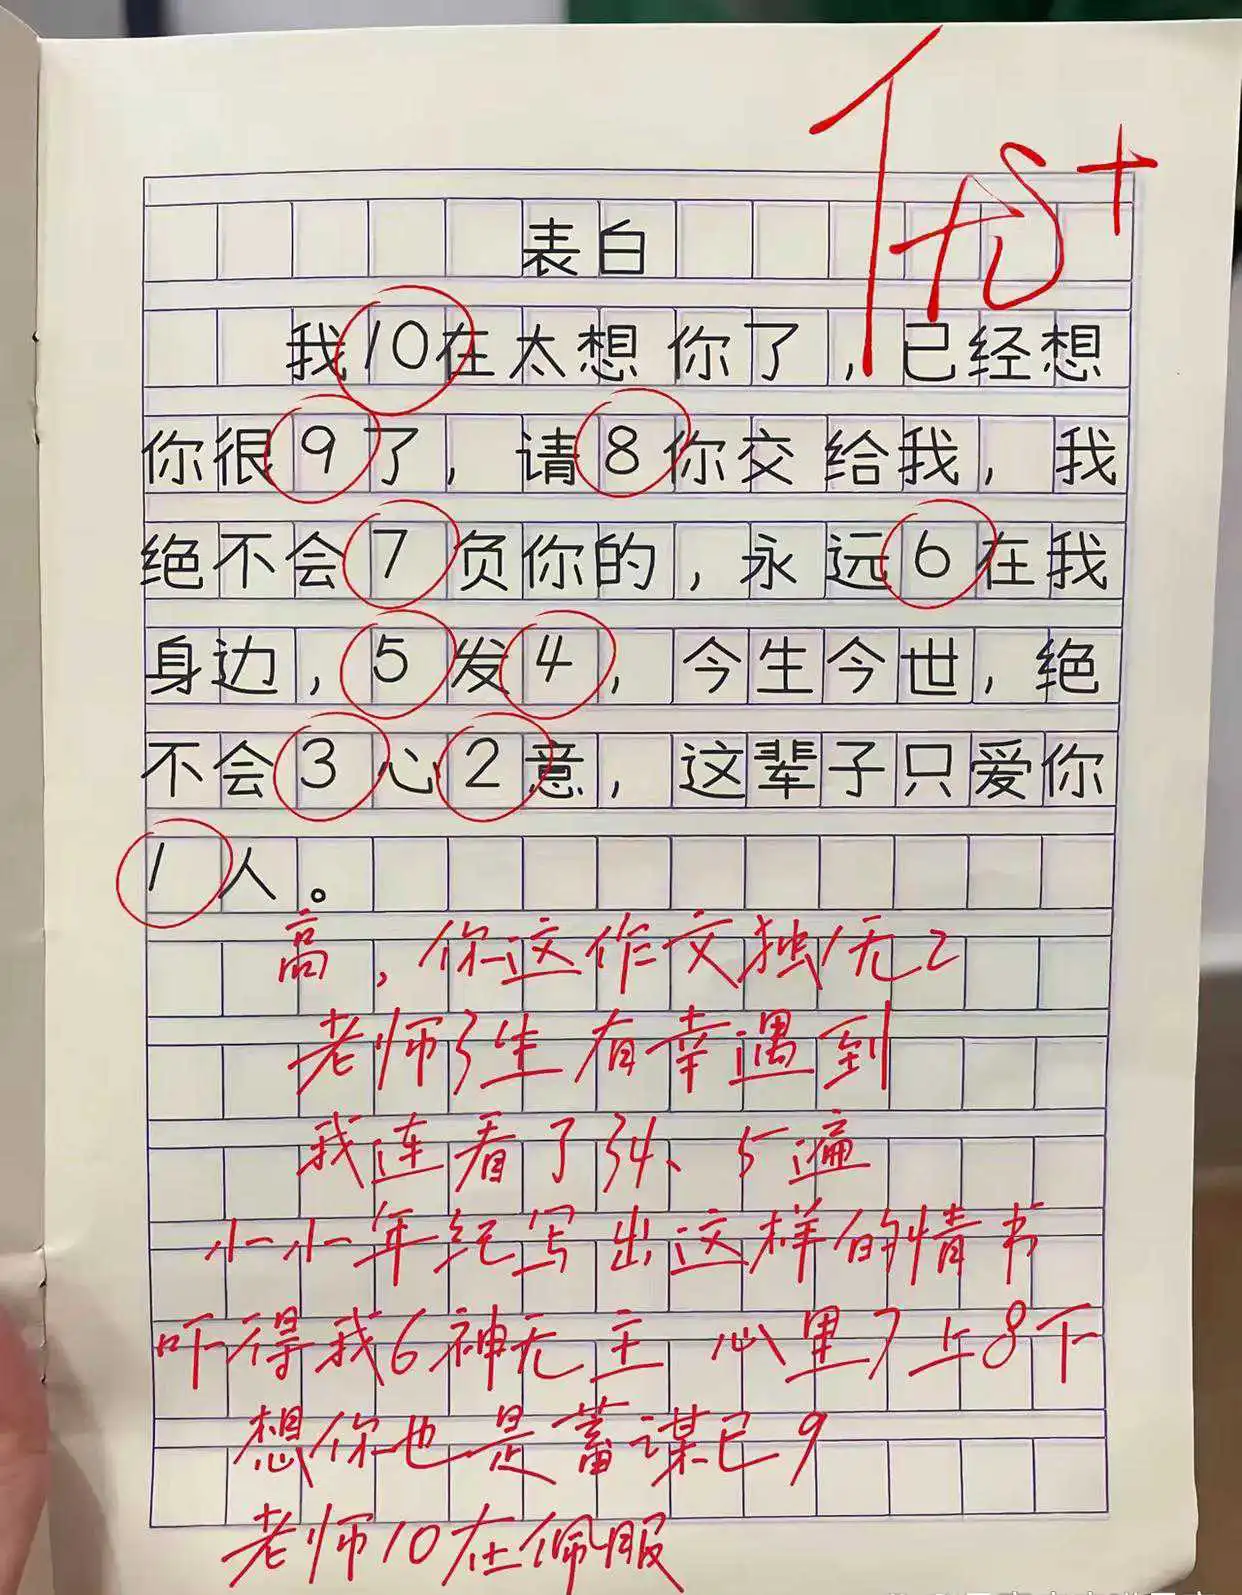 优+
表白
我10在太想你了，已经想
你很9了，请8你交给我，我
绝不会7负你的，永远6在我
身边，5发4，今生今世，绝
不会3心2意，这辈子只爱你
1人。
高，你这作文独1无2
老师3生有幸遇到
我连看了34、5遍
小小年纪写出这样的情书
吓得我6神无主 心里7上8下
想你也是蓄谋已9
老师10在佩服